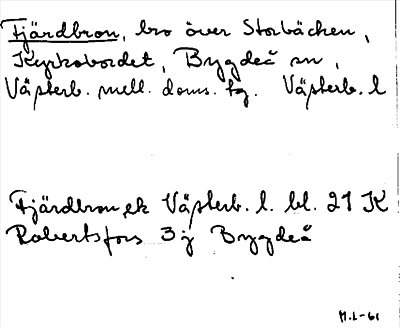 Fjärdbron, bro över Storbäcken,
Kyrkobordet, Bygdeå sn,
Västerb. mell. doms. tg. Västerb. l
Fjärdbron, ek Västerb. l. bl. 21 K
Robertsfors 3 j Bygdeå
M.L-61